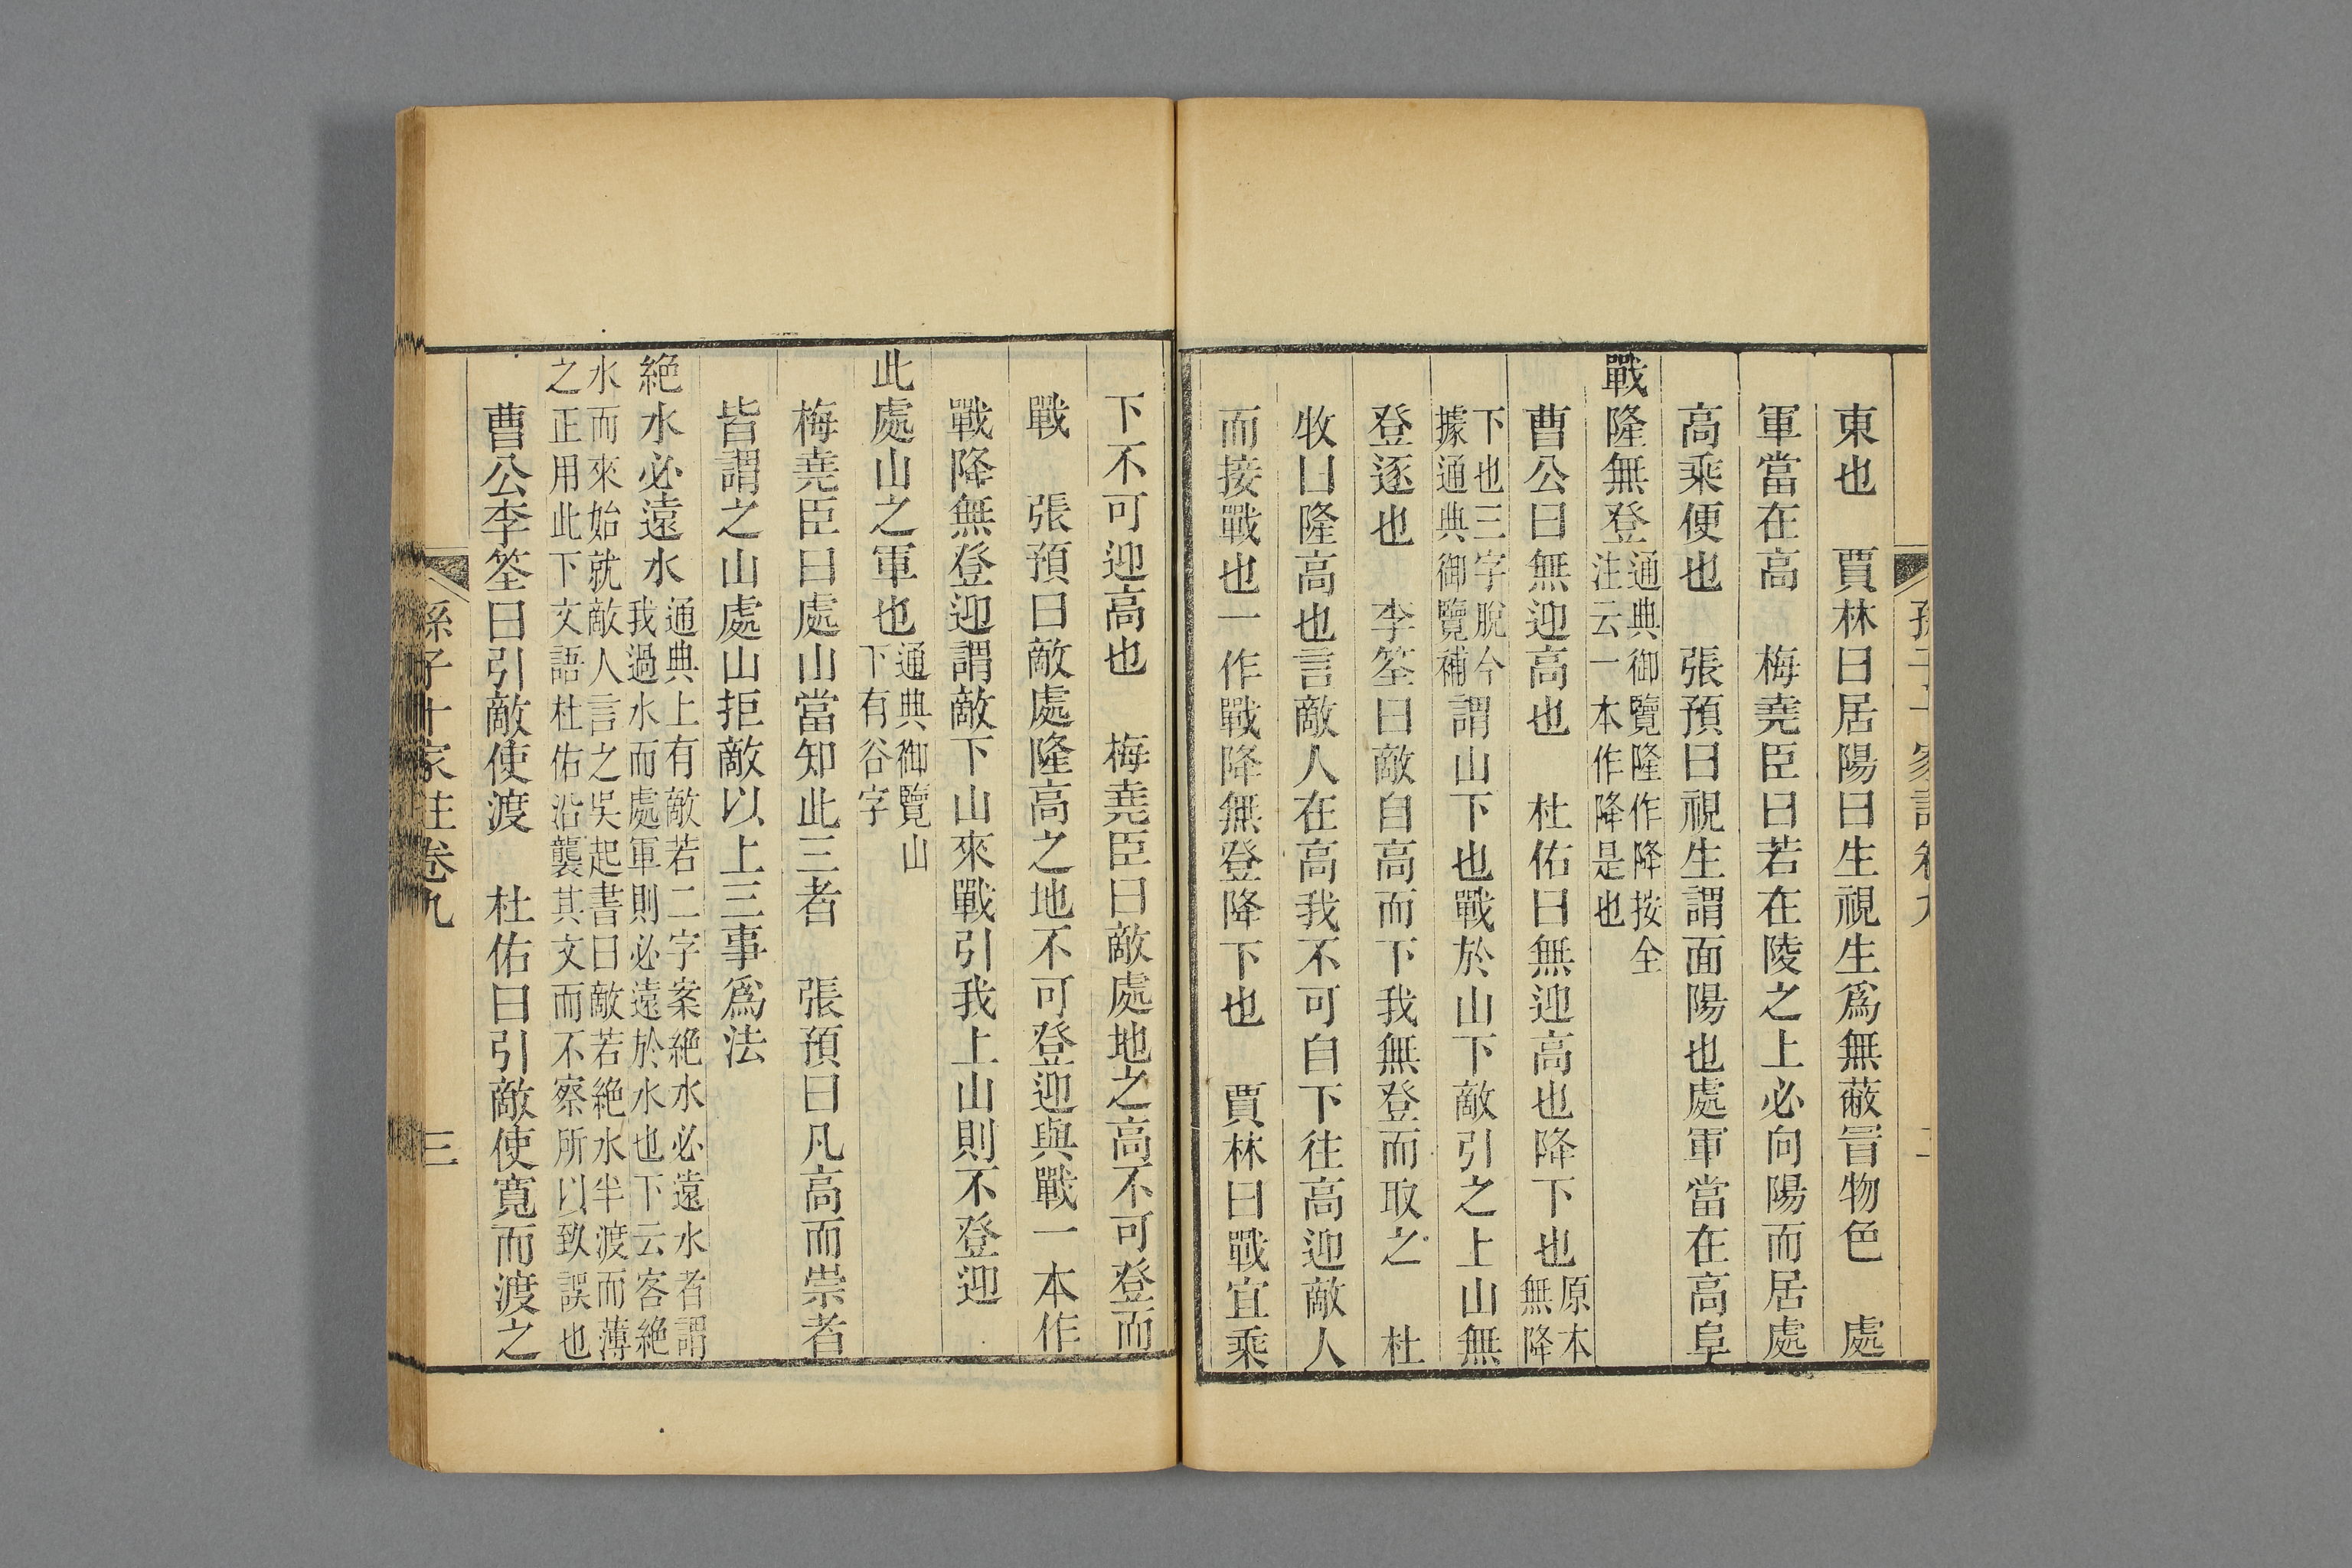 東也　賈林曰居陽曰生視生爲無蔽冒物色　處
軍當在高　梅堯臣曰若在陵之上必向陽而居處
高乘便也　張預曰視生謂面陽也處軍當在高阜
戰隆無登通典御覽隆作降按全注云一本作降是也
曹公曰無迎高也　杜佑曰無迎高也降下也原本無降
下也三字脫今據通典御覽補謂山下也戰於山下敵引之上山無
登逐也　李筌曰敵自高而下我無登而取之　杜
牧曰隆高也言敵人在高我不可自下往高迎敵人
而接戰也一作戰降無登降下也　賈林曰戰宜乘
下不可迎高也　梅堯臣曰敵處地之高不可登而
戰　張預曰敵處隆高之地不可登迎與戰一本作
戰降無登迎謂敵下山來戰引我上山則不登迎
此處山之軍也通典御覽山下有谷字
梅堯臣曰處山當知此三者　張預曰凡高而崇者
皆謂之山處山拒敵以上三事爲法
絶水必遠水通典上有敵若二字案絶水必遠水者謂我過水而處軍則必遠於水也下云客絶
水而來始就敵人言之吳起書曰敵若絶水半渡而薄之正用此下文語杜佑沿襲其文而不察所以致誤也
曹公李筌曰引敵使渡　杜佑曰引敵使寬而渡之
孫子十家注卷九　三